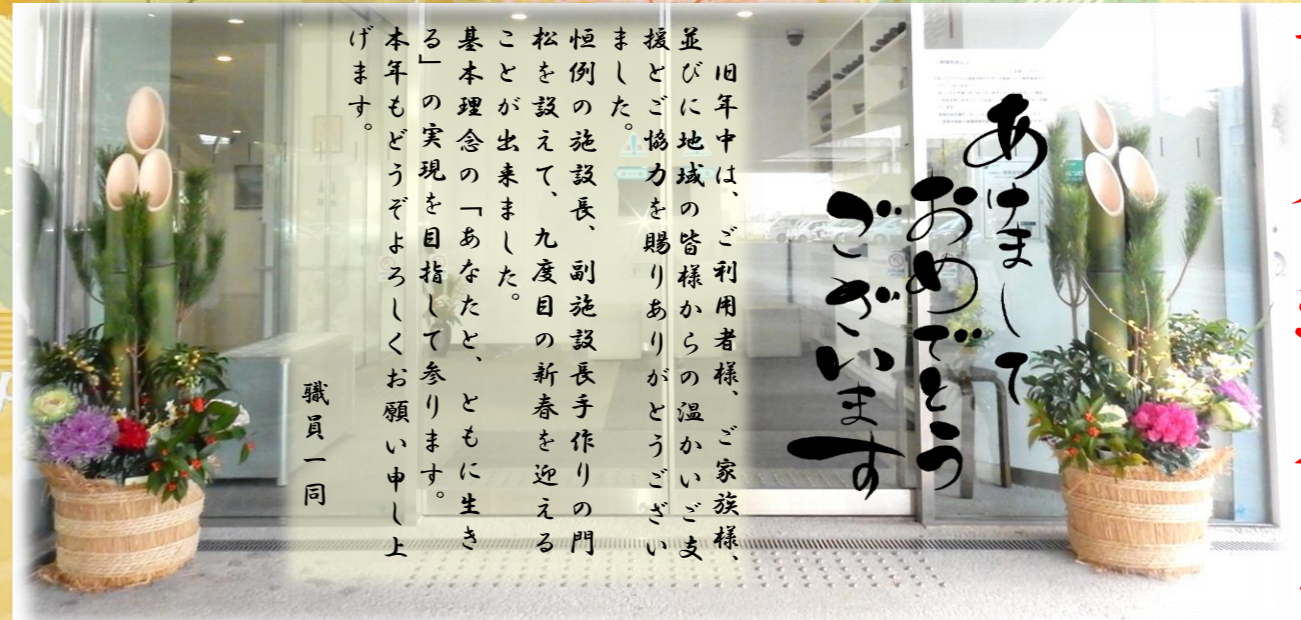 あけまして
おめでとう
ございます
旧年中は、ご利用者様、ご家族様、
並びに地域の皆様からの温かいご支
援とご協力を賜りありがとうござい
ました。
恒例の施設長、副施設長手作りの門
松を設えて、九度目の新春を迎える
ことが出来ました。
基本理念の「あなたと、ともに生き
る」の実現を目指して参ります。
本年もどうぞよろしくお願い申し上
げます。
職員一同